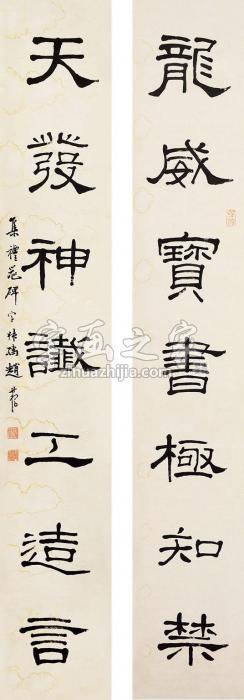 龍威寶書極知禁
天發神讖工造言
集禮器碑字趙
字画之家
zihuazhijia.com